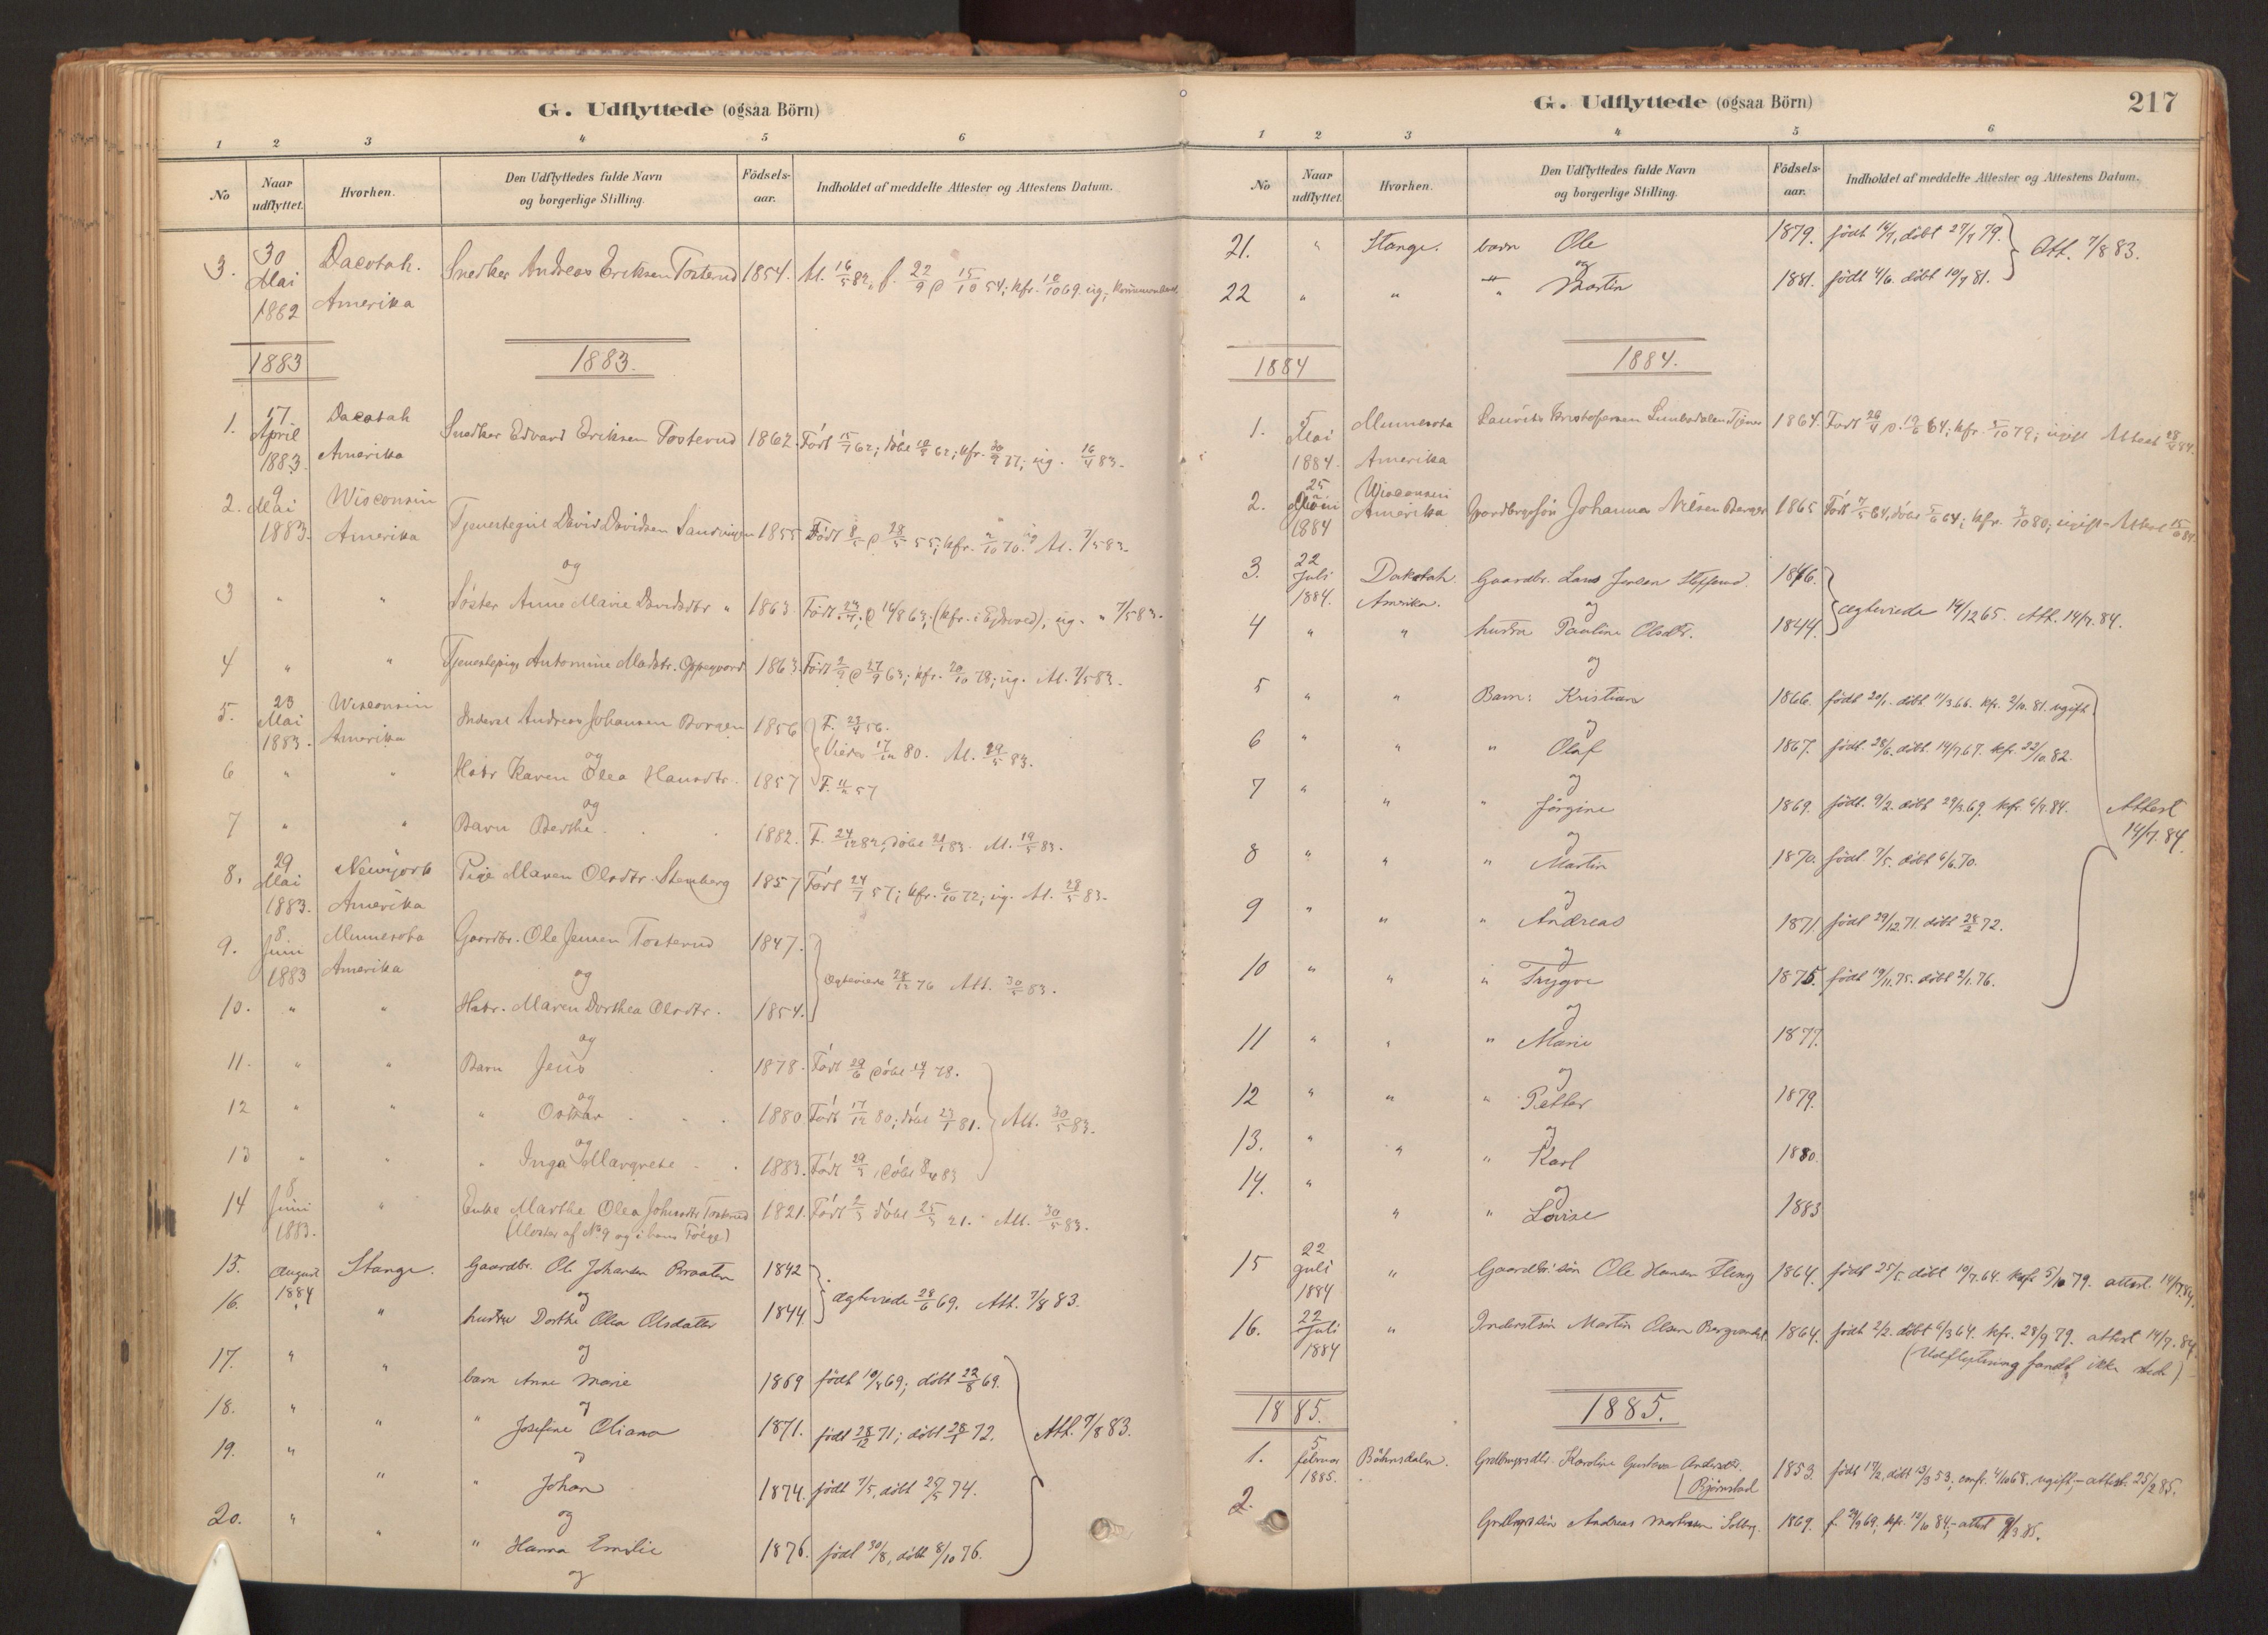 G. Udflyttede (ogsaa Börn)
1 2 3 4 5 6
No Naar udflyttet. Hvorhen. Den Udflyttedes fulde Navn og borgerlige Stilling. Födsels-aar. Indholdet af meddelte Attester og Attestens Datum.
3. 30 Mai 1882 Dacotah. Amerika Snedker Andreas Eriksen Tosterud 1854. At. 16/5 82, f. 22/9 d 15/10 54; kfr. 10/10 69. ug;
1883 1883.
1. 17 April 1883. Dacotah Amerika Snedker Edvard Eriksen Tosterud 1862 Født 15/7 62; døbt 10/8 62; kfr. 30/9 77; ug. 16/4 83.
2. 9 Mai 1883. Wisconsin Amerika Tjenestegut David Davidsen Sandvigen 1855 Født 8/5 d 28/5 55; kfr. 2/10 70. ug At. 7/5 83.
og
3 " " Søster Anne Marie Davidsdtr " 1863. Født 23/7, d 16/8 63; (kfr. i Eidsvold), ug. " 7/5 83.
4 " " Tjenestepige Antomine Madsdtr. Oppegaard 1863. Født 2/9 d 27/9 63; kfr. 20/10 78; ug. At. 7/5 83.
5. 23 Mai 1883. Wisconsin Amerika Inderst Andreas Johansen Borgen 1856 F. 23/4 56.
Viede 17/12 80. At. 19/5 83.
og
6 " " Hstr Karen Olea Hansdtr. 1857 F. 57
og
7 " " Barn Berthe. 1882. F. 24/12 82, døbt 21/1 83. At. 19/5 83.
8. 29 Mai 1883. Newyork Amerika Pige Maren Olsdtr. Stenberg 1857 Født 24/7 57; kfr. 6/10 72; ug. At. 28/5 83.
9. 8 Juni 1883 Minnesota Amerika Gaardbr. Ole Jensen Tosterud 1847.
og
ægteviede 28/12 76 Att. 30/5 83.
10. " " Hstr. Maren Dorthea Olsdtr. 1854.
og
11. " " Barn Jens 1878. Født 29/6 døbt 14/7 78.
og
12 " " " Oskar 1880 Født 17/12 80; døbt 23/1 81. Att. 30/5 83.
og
13 " " " Inga Margrete 1883. Født 29/3 døbt 8/4 83
14 8 Juni 1883. " Enke Marthe Olea Johnsdtr Tosterud 1821. Født 2/3 døbt 25/3 21. Att. 30/5 83.
(Moster af No 9 og i hans Følge)
15. August 1884 Stange. Gaardbr. Ole Johansen Braaten 1842
og
ægteviede 28/6 69. Att. 7/8 83.
16. " " hustru Dorthe Olea Olsdatter 1844
og
17. " " barn Anne Marie 1869 født 10/8 69; døbt 22/8 69.
og
18. " " " Josefine Oliana 1871. født 28/12 71; døbt 28/1 72. Att. 7/8 83.
og
19. " " " Johan 1874. født 7/5, døbt 25/5 74.
og
20. " " " Hanna Emilie 1876. født 30/8, døbt 8/10 76.
og
G. Udflyttede (ogsaa Börn) 217
1 2 3 4 5 6
No Naar udflyttet. Hvorhen. Den Udflyttedes fulde Navn og borgerlige Stilling. Födsels-aar. Indholdet af meddelte Attester og Attestens Datum.
21. " Stange. barn Ole 1879. født 14/7, døbt 27/7 79. Att. 7/8 83.
og
22 " " " Martin 1881. født 4/6. døbt 10/7 81.
1884 1884.
1. 5 Mai 1884. Minnesota Amerika Laurits Kristofersen Tjener 1864. Født 20/4 d. 19/6 64; kfr. 5/10 79; ugift Attest 28/4 84.
2. 25 Juni 1884 Wisconsin Amerika Gaardbrgssøn Johannes Nilsen Berger 1865 Født 7/5 64, døbt 5/6 64; kfr. 3/10 80; ugift - Attest 15/6 84.
3. 22 Juli 1884. Dakotah. Amerika. Gaardbr. Lars Jensen 1846.
og
ægteviede 14/12 65. Att. 14/7. 84.
4 " " hustru Pauline Olsdtr. 1844.
og
5 " " Barn: Kristian 1866. født 20/1. døbt 11/3 66. kfr. 2/10. 81. ugift.
og
6 " " " Olaf 1867. født. 28/6. døbt. 14/7 67. kfr. 22/10 82.
og
7 " " " Jørgine 1869. født. 9/2. døbt 29/3 69. kfr 6/7 84. Attest 14/7. 84.
og
8 " " " Martin 1870. født. 7/5. døbt 6/6 70.
og
9 " " " Andreas 1871. født 29/12 71. døbt 28/2 72.
og
10 " " " Trygve 1875. født 19/11. 75. døbt 2/1. 76.
og
11 " " " Marie 1877.
og
12 " " " Petter 1879.
og
13. " " " Karl 1880.
og
14. " " " Lovise 1883
15 22 juli 1884 " Gaardbr.søn Ole Hansen Fling 1864. født 25/5. døbt 10/7. 64. kfr. 5/10 79. attest. 14/7 84.
16. 22 Juli 1884 " Inderstsøn Martin Olsen 1864. født 2/2. døbt 6/3 64. kfr. 28/9 79. attest 14/7. 84.
(Udflytning fandt ikke sted)
1885. 1885.
1. 5 februar 1885. Böhnsdalen. Grdbrgrsdtr. Karoline Gustava Andersdtr. Bjørnstad 1853. født 17/2, døbt 13/3 53; conf. 4/10 68. ugift; - attest. 25/2 85.
2. Grdbrgrssøn Andreas Martinsen Solberg. 1869. f. 24/9 69, kfr. 12/10 84; - attest 9/3 85.